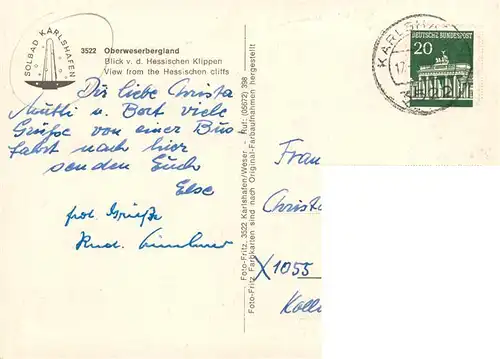 SOLBAD KARLSHAFEN
3522 Oberweserbergland
Blick v. d. Hessischen Klippen
View from the Hessischen cliffs
Dir liebe Christa
Mutti u. Bort viele
Grüße von einer Bus
fahrt nach hier
senden Euch
Else
frdl. Grüße
Foto-Fritz, 3522 Karlshafen/Weser - Ruf: (05672) 398
Foto-Fritz Farbkarten sind nach Original-Farbaufnahmen hergestellt
KARLSHA
17.
DEUTSCHE BUNDESPOST
20
Frau
Christa
X1055